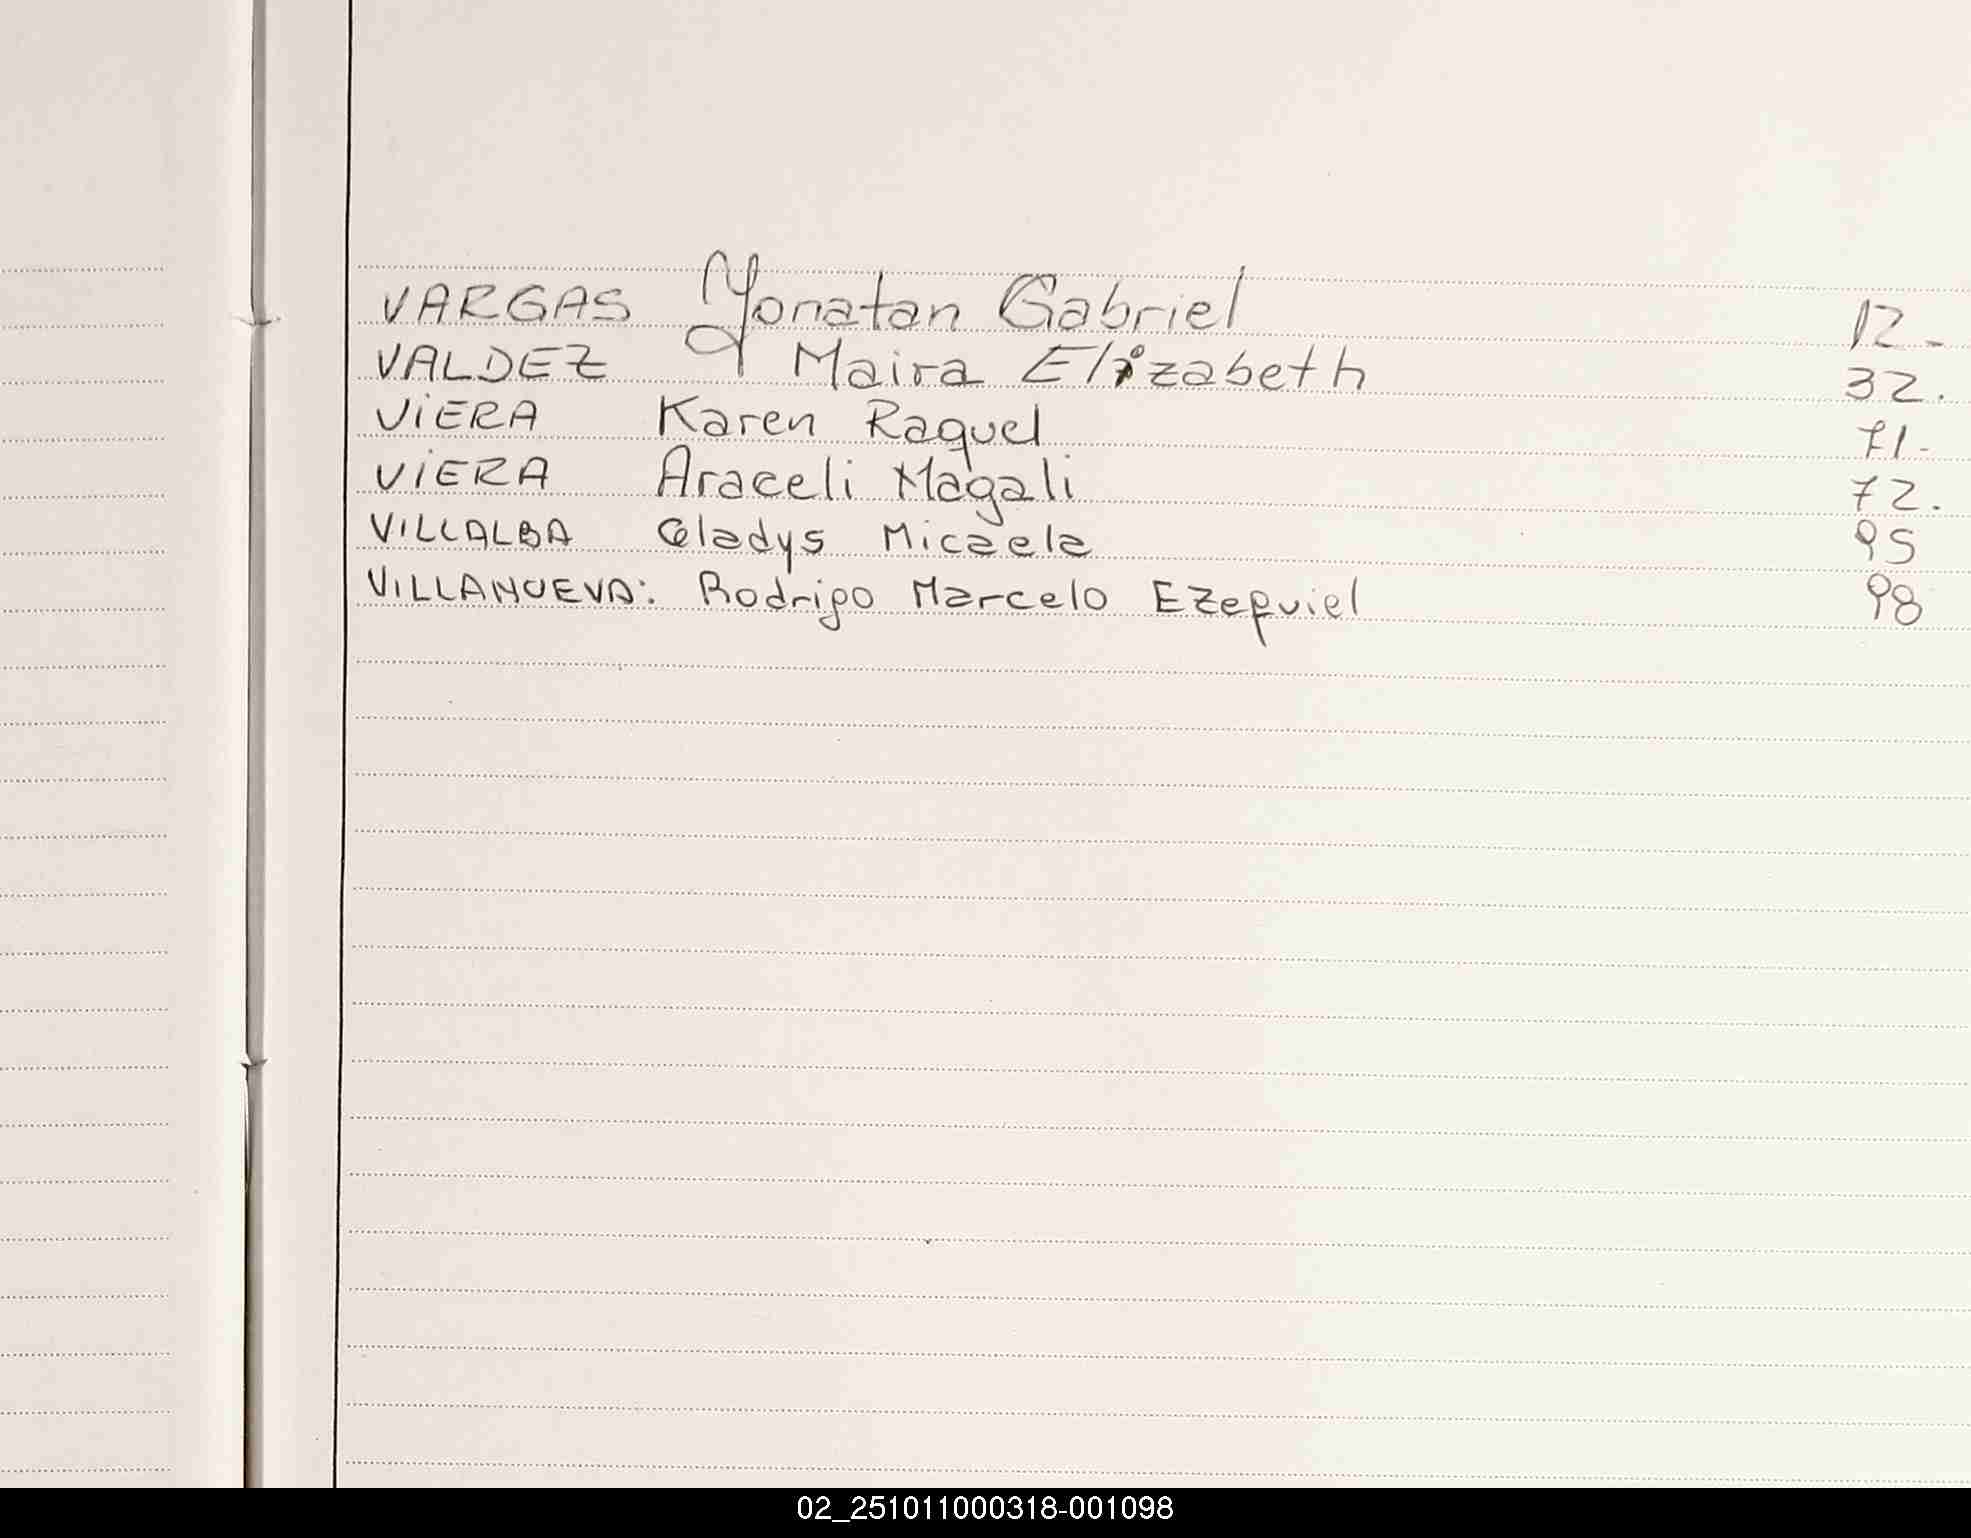 VARGAS Yonatan Gabriel 12.-
VALDEZ Maira Elizabeth 32.
VIERA Karen Raquel 71.-
VIERA Araceli Magali 72.
VILLALBA Gladys Micaela 95
VILLANUEVA: Rodrigo Marcelo Ezequiel 98
02_251011000318-001098